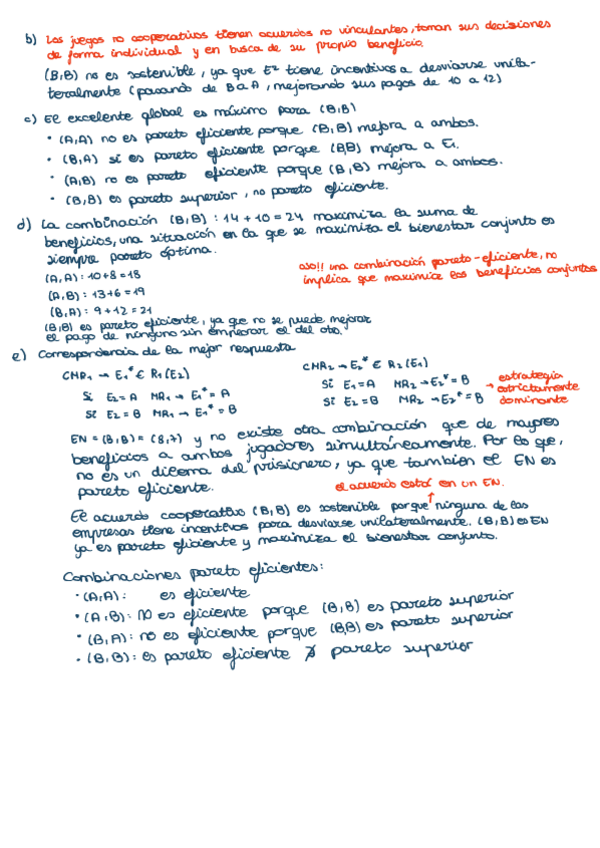 b) Los juegos no cooperativos tienen acuerdos no vinculantes, toman sus decisiones
de forma individual y en busca de su propio beneficio.
(B,B) no es sostenible, ya que E2 tiene incentivos a desviarse unila-
teralmente (pasando de B a A, mejorando sus pagos de 10 a 12)
c) El excelente global es máximo para (B,B)
• (A,A) no es pareto eficiente porque (B,B) mejora a ambos.
• (B,A) sí es pareto eficiente porque (B,B) mejora a E1.
• (A,B) no es pareto eficiente porque (B,B) mejora a ambos.
• (B,B) es pareto superior, no pareto eficiente.
d) La combinación (B,B): 14+10=24 maximiza la suma de
beneficios, una situación en la que se maximiza el bienestar conjunto es
siempre pareto óptima.
ojo!! una combinación pareto-eficiente, no
implica que maximice los beneficios conjuntos
(A,A): 10+8=18
(A,B): 13+6=19
(B,A): 9+12=21
(B,B) es pareto eficiente, ya que no se puede mejorar
el pago de ninguno sin empeorar el del otro.
e) Correspondencia de la mejor respuesta
CMR1 → E1* ∈ R1(E2)
Si E2=A MR1 → E1* = A
Si E2=B MR1 → E1* = B
CMR2 → E2* ∈ R2(E1)
Si E1=A MR2 → E2* = B
Si E2=B MR2 → E2* = B
→ estrategia
estrictamente
dominante
EN = (B,B) = (8,7) y no existe otra combinación que de mayores
beneficios a ambos jugadores simultáneamente. Por lo que,
no es un dilema del prisionero, ya que también el EN es
pareto eficiente.
el acuerdo está en un EN.
El acuerdo cooperativo (B,B) es sostenible porque ninguna de las
empresas tiene incentivos para desviarse unilateralmente. (B,B) es EN
ya es pareto eficiente y maximiza el bienestar conjunto.
Combinaciones pareto eficientes:
• (A,A): es eficiente
• (A,B): no es eficiente porque (B,B) es pareto superior
• (B,A): no es eficiente porque (B,B) es pareto superior
• (B,B): es pareto eficiente y pareto superior